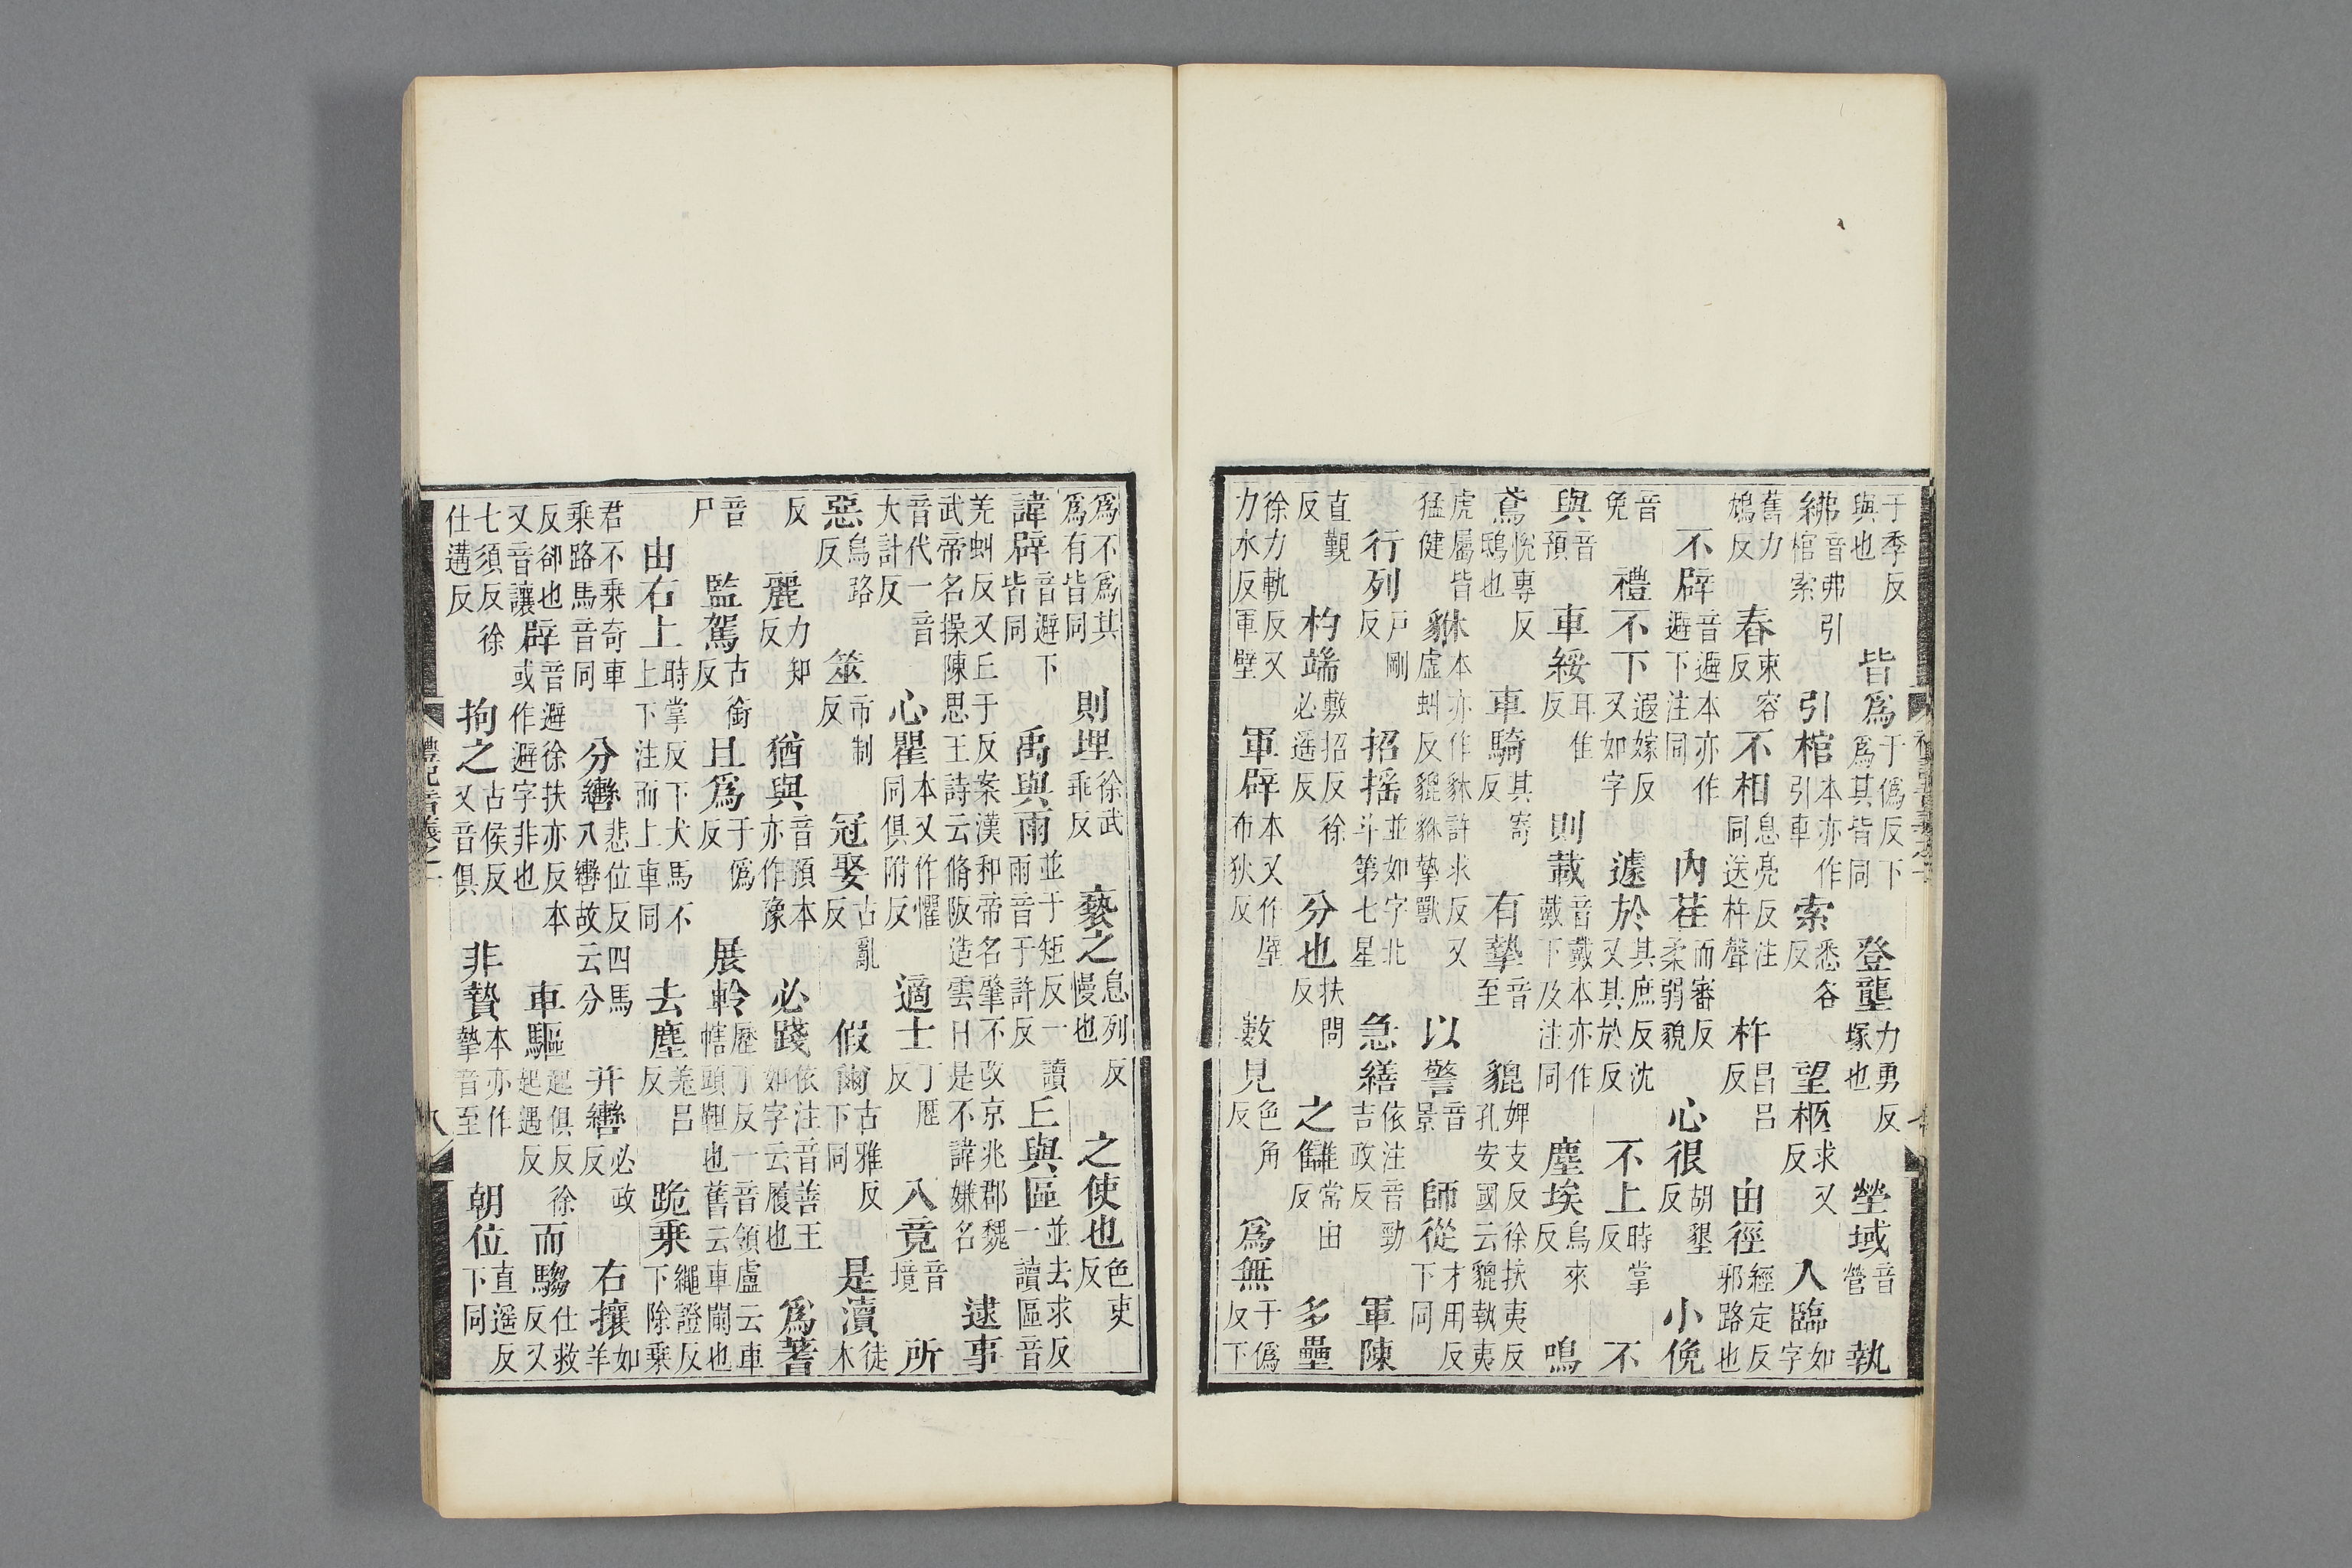 于季反與也皆爲于僞反下爲其皆同登壟力勇反塚也塋域音營執
紼音弗引棺索引棺本亦作引車索悉各反望柩求又反入臨如字
舊力鴆反舂束容反不相息亮反注同送杵聲杵昌呂反由徑經定反邪路也
不辟音避本亦作避下注同內荏而審反柔弱貌心很胡墾反小俛
音免禮不下遐嫁反又如字遽於其庶反沈又其於反不上時掌反不
與音預車綏耳隹反則載音戴本亦作戴下及注同塵埃烏來反鳴
鳶悅專反鴟也車騎其寄反有摯音至貔婢支反徐扶夷反孔安國云貔執夷
虎屬皆猛健貅本亦作貅許求反又虛蚪反貔貅摯獸以警音景師從才用反下同
行列戶剛反招摇並如字北斗第七星急繕依注音勁吉政反軍陳
直覲反杓端敷招反徐必遥反分也扶問反之讎常由反多壘
徐力軌反又力水反軍壁軍辟本又作壁布狄反數見色角反爲無于僞反下
爲不爲其爲有皆同則埋徐武乖反褻之息列反慢也之使也色吏反
諱辟音避下皆同禹與雨並于矩反一讀雨音于許反丘與區並去求反一讀區音
羌蚪反又丘于反案漢和帝名肇不改京兆郡魏武帝名操陳思王詩云脩阪造雲日是不諱嫌名逮事
音代一音大計反心瞿本又作懼同俱附反適士丁歷反入竟音境所
惡烏路反筮市制反冠娶古亂反假爾古雅反下同是瀆徒木
反麗力知反猶與音預本亦作豫必踐依注音善王如字云履也爲蓍
音尸監駕古銜反且爲于僞反展軨歷丁反一音領盧云車轄頭靼也舊云車闌也
由右上時掌反下犬馬不上下注而上車同去塵羌呂反跪乘繩證反下除乘
君不乘奇車乘路馬音同分轡悲位反四馬八轡故云分并轡必政反右攘如羊
反卻也又音讓辟音避徐扶亦反本或作避字非也車驅起俱反徐起遇反而騶仕救反又
七須反徐仕遘反拘之古侯反又音俱非贄本亦作摯音至朝位直遥反下同
禮記音義之一
八